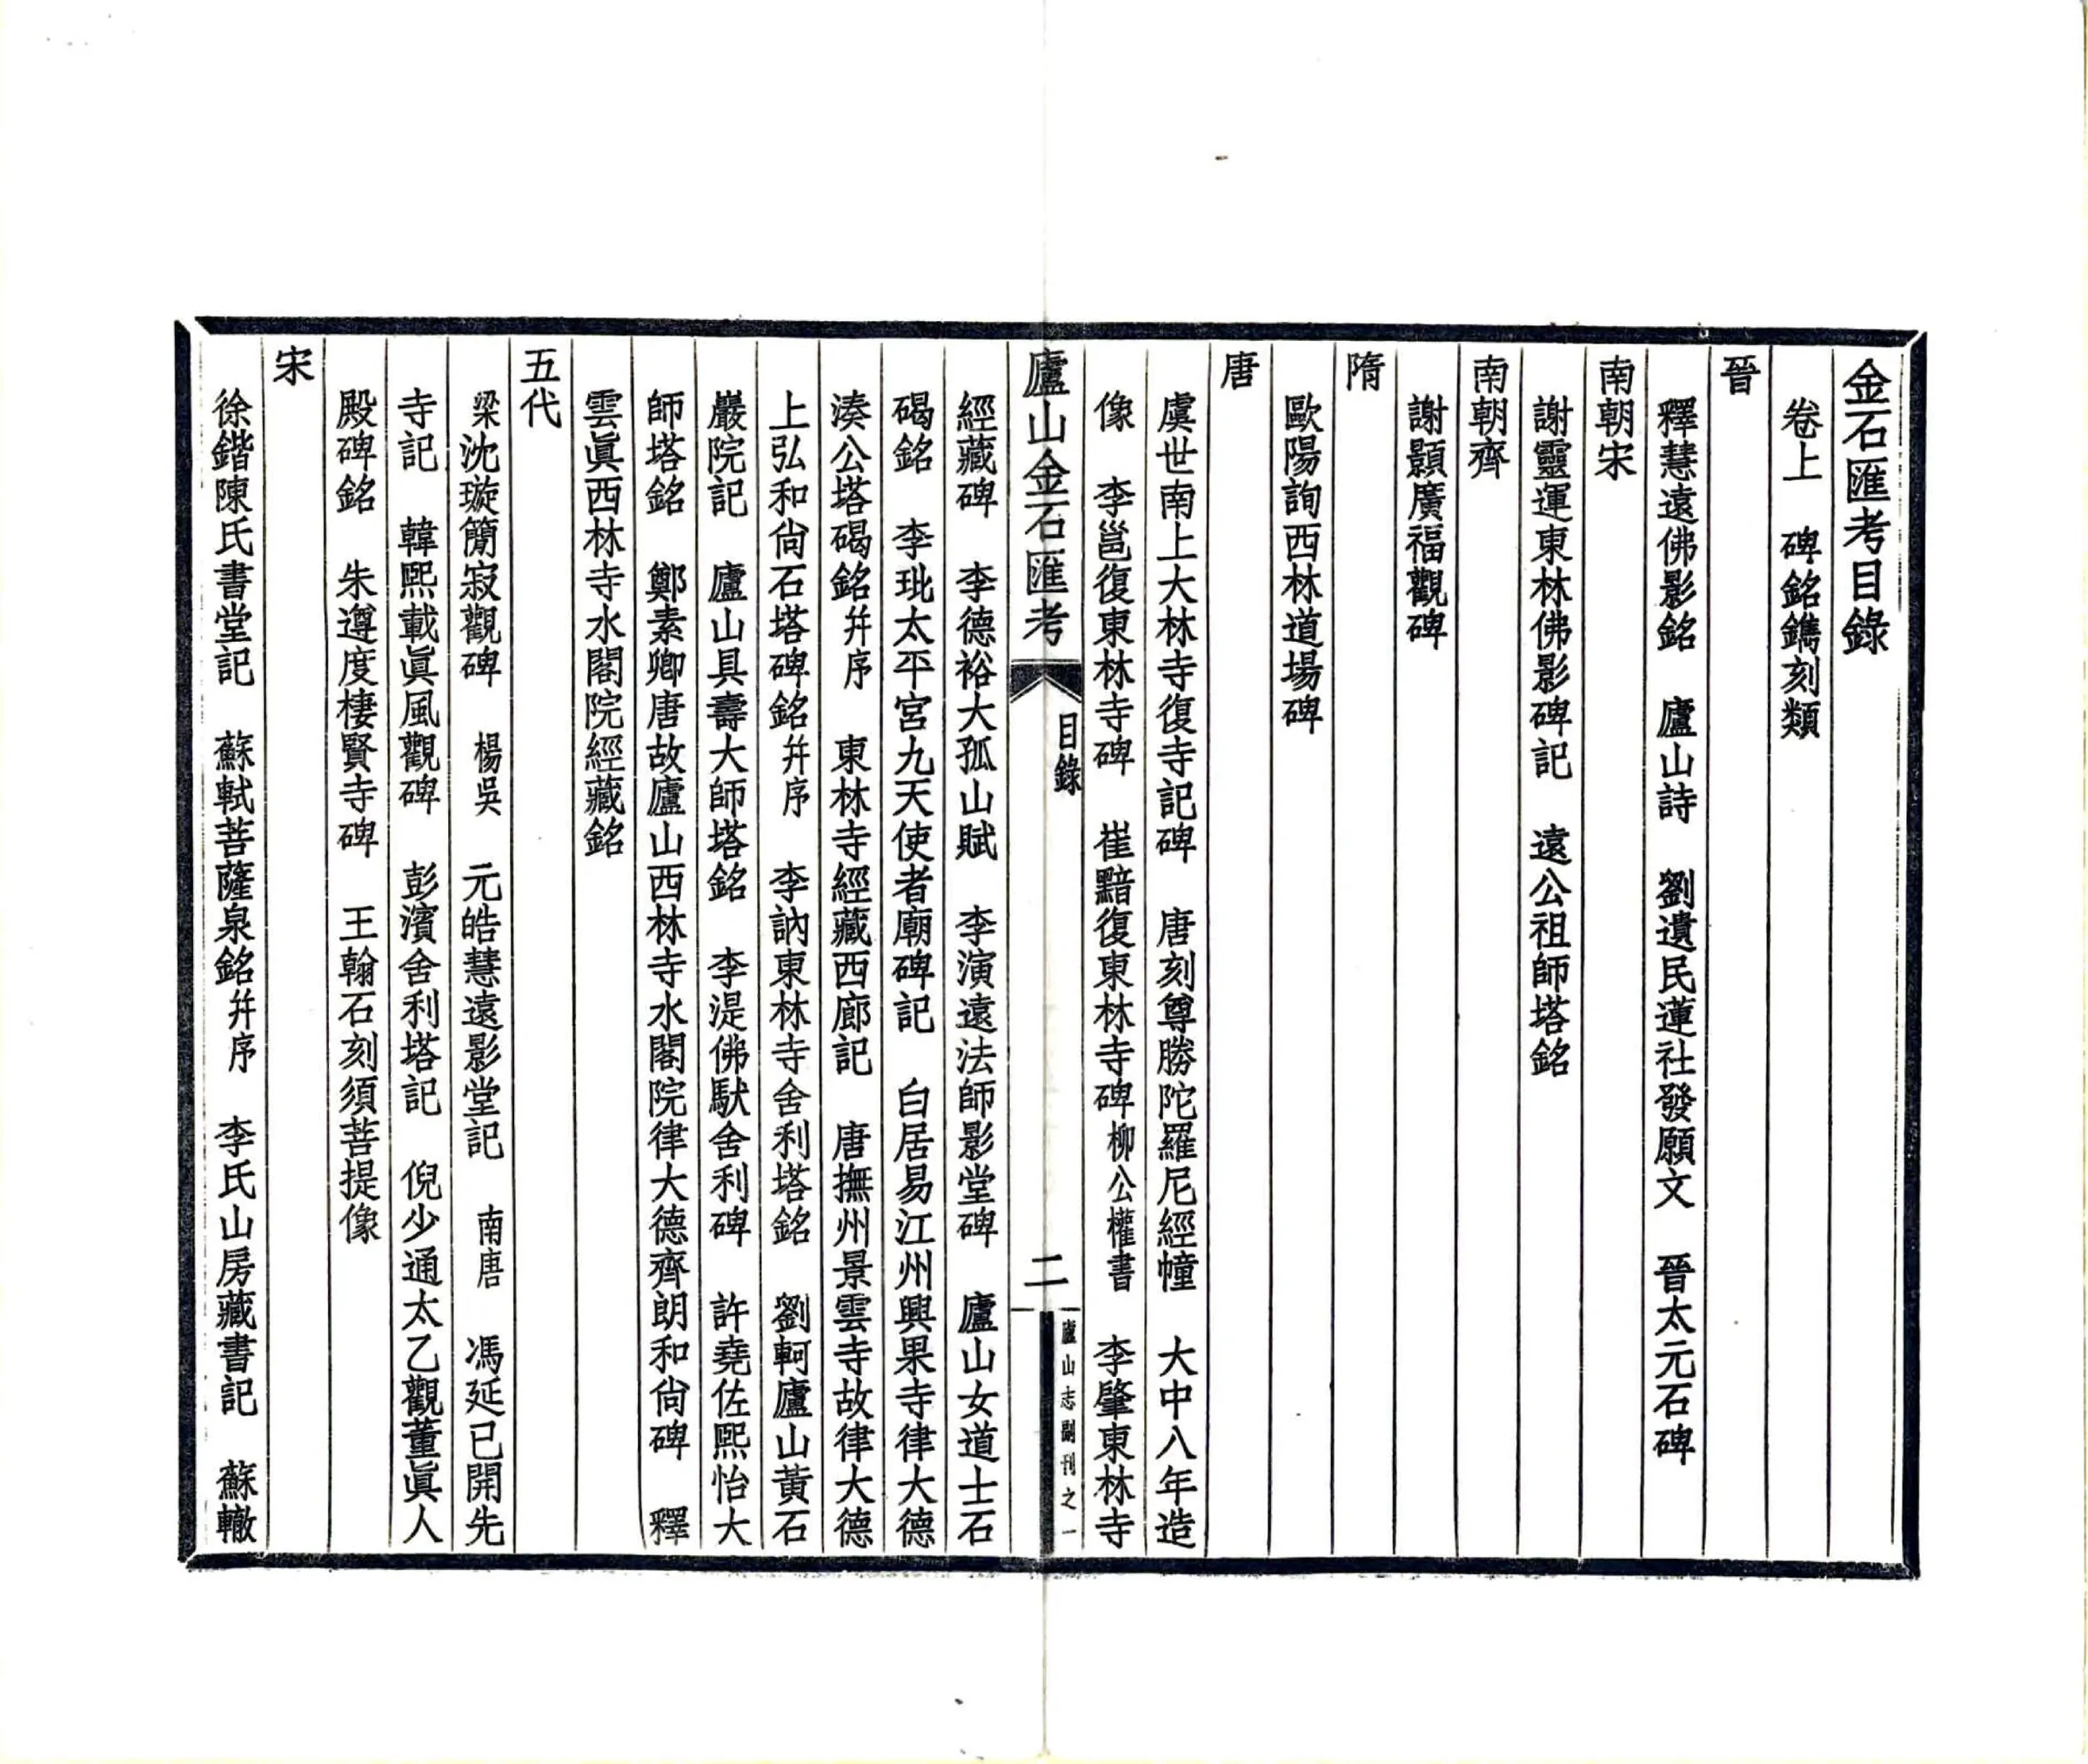 金石匯考目錄
卷上　碑銘鐫刻類
晉
釋慧遠佛影銘　廬山詩　劉遺民蓮社發願文　晉太元石碑
南朝宋
謝靈運東林佛影碑記　遠公祖師塔銘
南朝齊
謝顥廣福觀碑
隋
歐陽詢西林道場碑
唐
虞世南上大林寺復寺記碑　唐刻尊勝陀羅尼經幢　大中八年造
像　李邕復東林寺碑　崔黯復東林寺碑柳公權書　李肇東林寺
廬山金石匯考
目錄
二
廬山志副刊之一
經藏碑　李德裕大孤山賦　李演遠法師影堂碑　廬山女道士石
碣銘　李玭太平宮九天使者廟碑記　白居易江州興果寺律大德
湊公塔碣銘幷序　東林寺經藏西廊記　唐撫州景雲寺故律大德
上弘和尙石塔碑銘幷序　李訥東林寺舍利塔銘　劉軻廬山黃石
巖院記　廬山具壽大師塔銘　李湜佛馱舍利碑　許堯佐熙怡大
師塔銘　鄭素卿唐故廬山西林寺水閣院律大德齊朗和尙碑　釋
雲眞西林寺水閣院經藏銘
五代
梁沈璇簡寂觀碑　楊吳　元皓慧遠影堂記　南唐　馮延已開先
寺記　韓熙載眞風觀碑　彭濱舍利塔記　倪少通太乙觀董眞人
殿碑銘　朱遵度棲賢寺碑　王翰石刻須菩提像
宋
徐鍇陳氏書堂記　蘇軾菩薩泉銘幷序　李氏山房藏書記　蘇轍